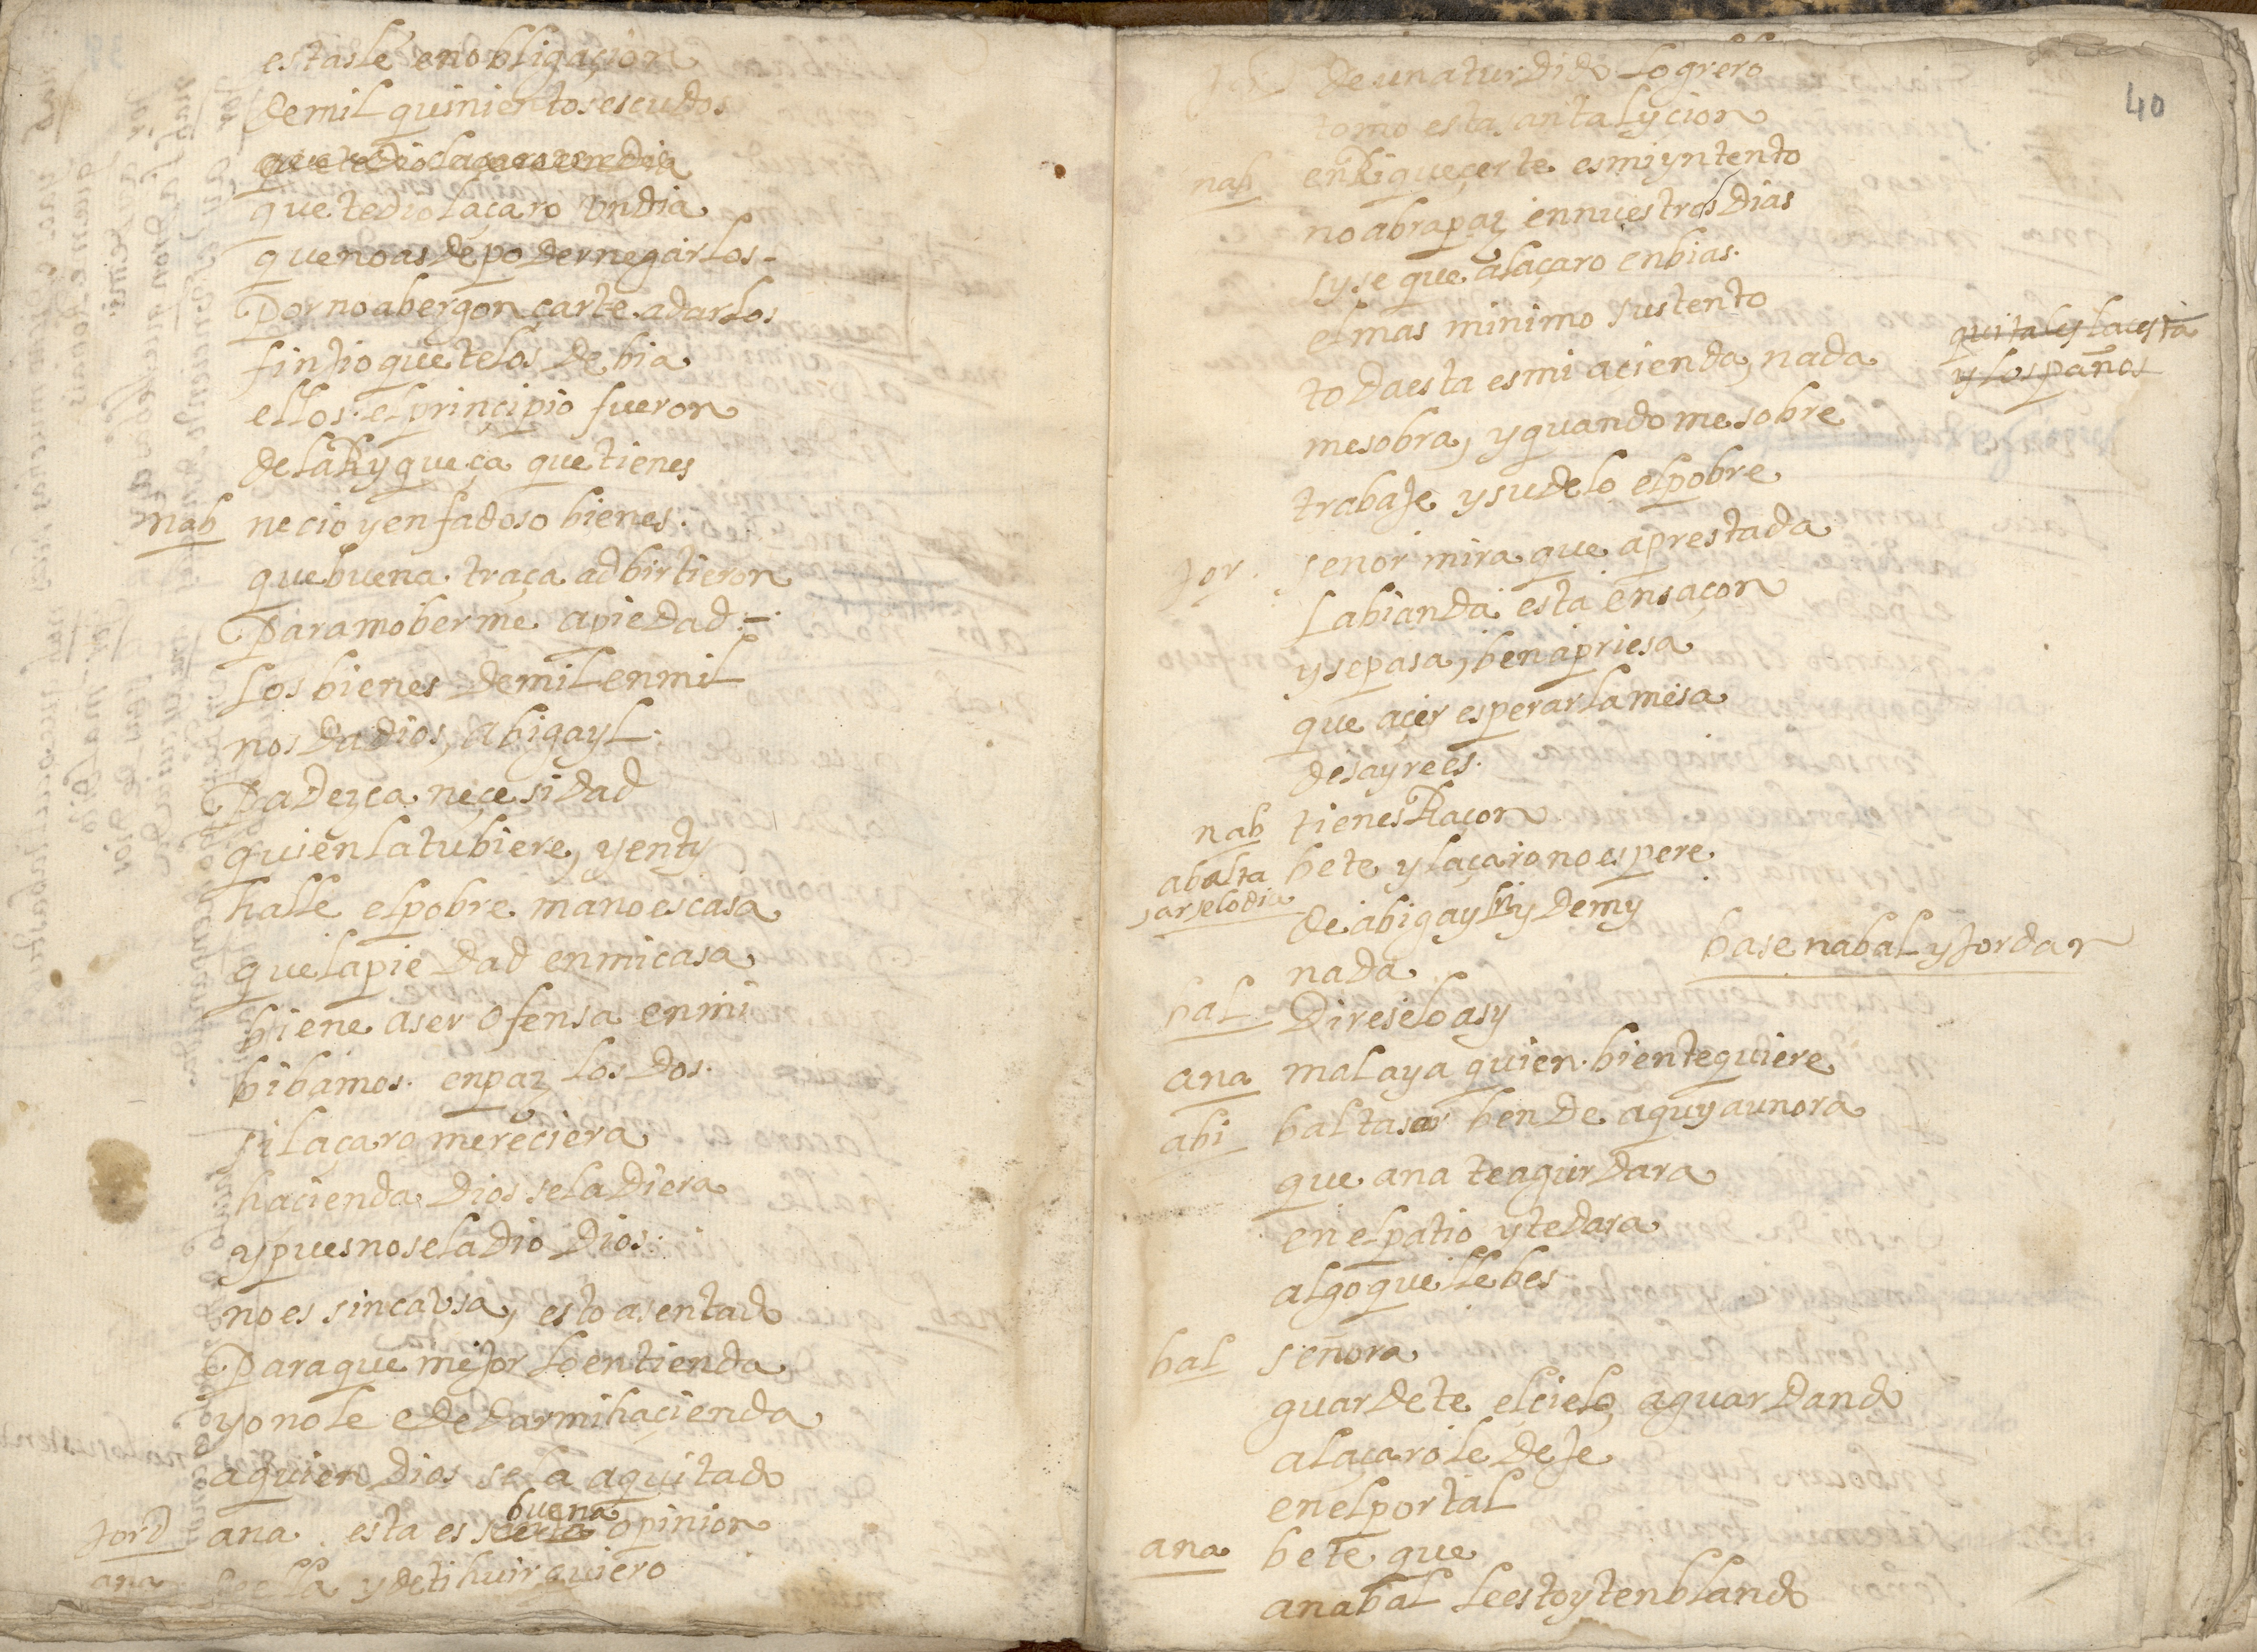 estasle en obligaçion
de mil quinientos escudos
que te dio laçaro un dia
que te dio laçaro un dia
que no as de poder negarlos
Por no abergonçarte a darlos
finjio que te los debia
ellos el prinçipio fueron
de la Ryqueça que tienes
nab necio y enfadoso bienes.
que buena traça adbirtieron
Para moberme a piedad
Los bienes de mil en mil
nos da dios, abigayl
Padezca neçesidad
quien la tubiere, y en ty
halle el pobre mano escasa
que la piedad en mi casa
biene a ser ofensa en mi
bibamos en paz los dos.
si laçaro mereciera
hacienda Dios se la diera
y pues no se la dio Dios
no es sin causa, esto asentado
Para que mejor lo entienda
yo no le e de dar mi haçienda
a quien Dios se la a quitado
jord ana esta es buena opinion
ana de ella y de ti huir quiero
40
jor De un aturdido logrero
tomo esta santa lycion
nab enRiqueçerte es mi yntento
no abra paz en nuestros dias
sy se que a laçaro enbias.
el mas minimo sustento
toda esta es mi açienda, nada
me sobra, y quando me sobre
trabaje y sudelo el pobre
quitales la cesta
y los paños
jor. señor mira que aprestada
La bianda esta en saçon
y se pasa, ben apriesa
que açer esperar la mesa
desayre es.
nab tienes Raçon
a balta
sar se lo dia
bete y laçaro no espere
de abigayl ny de my
nada
base nabal y jordan
bal Direselo asy
ana mal aya quien bien te quiere
abi baltasar ben de aquy a un ora
que ana te agurdara
en el patio y te dara
algo que llebes
bal señora
guardete el cielo, aguardando
a laçaro le deje
en el portal
ana bete que
a nabal le estoy tenblando